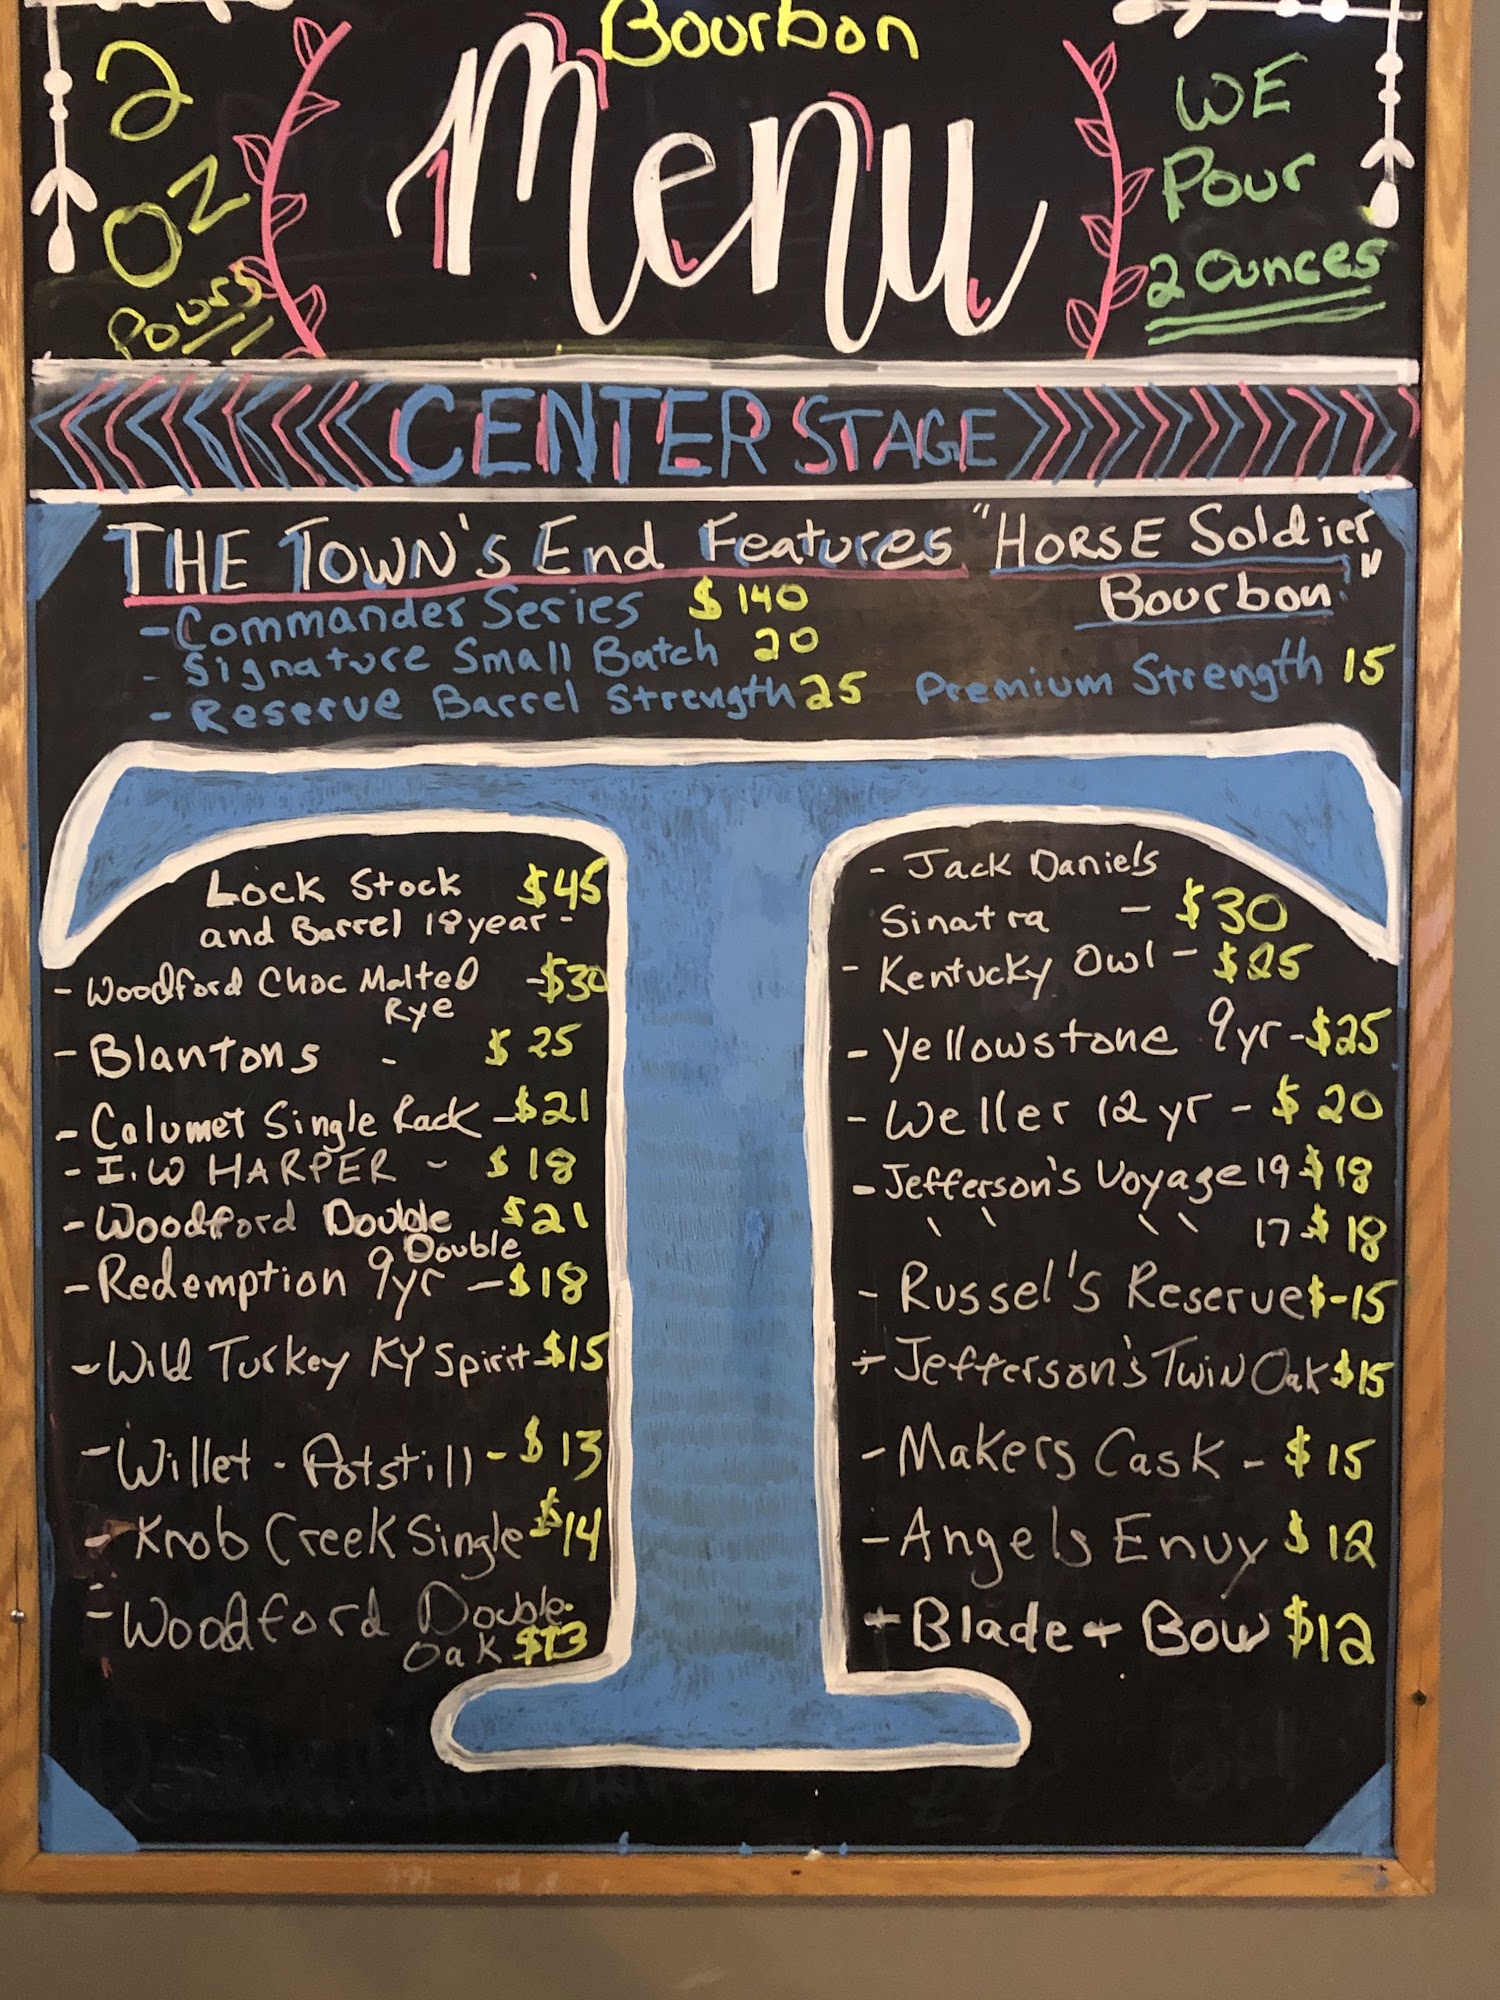 Bourbon
Menu
2
OZ
Pours
WE
Pour
2 Ounces
CENTER STAGE
THE TOWN'S End Features "HORSE Soldier
Bourbon"
- Commander Series $140
- Signature Small Batch 20
- Reserve Barrel Strength 25
Premium Strength 15
Lock Stock $45
and Barrel 18 year -
- Woodford Choc Malted -$30
Rye
- Blantons - $25
- Calumet Single Rack -$21
- I.W HARPER - $18
- Woodford Double $21
Double
- Redemption 9yr -$18
- Wild Turkey KY Spirit-$15
- Willet - Potstill - $13
- Knob Creek Single $14
- Woodford Double
Oak $13
- Jack Daniels
Sinatra - $30
- Kentucky Owl - $25
- Yellowstone 9yr-$25
- Weller 12 yr - $20
- Jefferson's Voyage 19 $18
\ \ \ \ 17 $18
- Russel's Reserve$-15
- Jefferson's Twin Oak $15
- Makers Cask - $15
- Angels Envy $12
- Blade + Bow $12